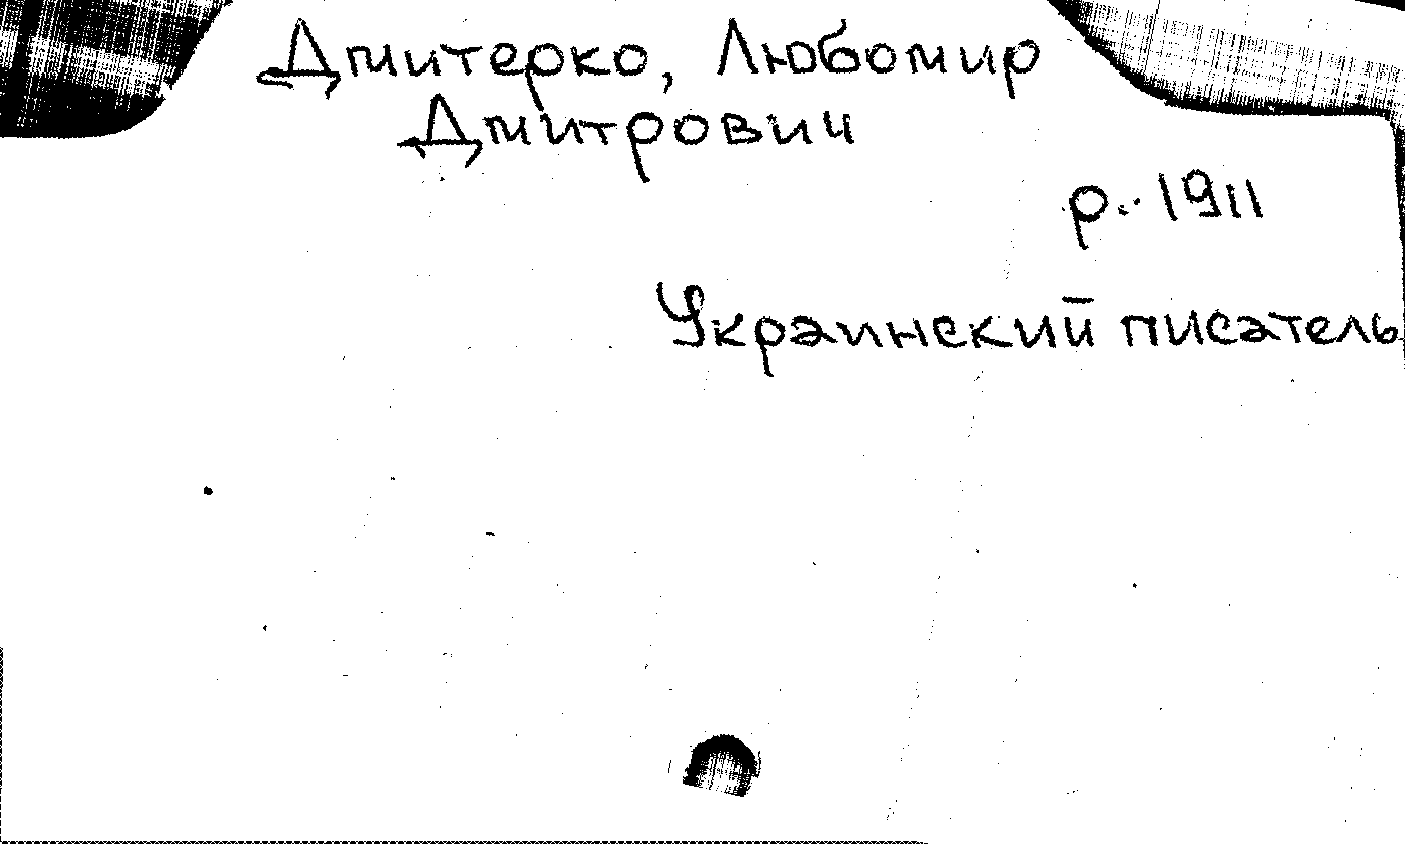 Дмитерко, Любомир
Дмитрович
р. 1911
Украинский писатель